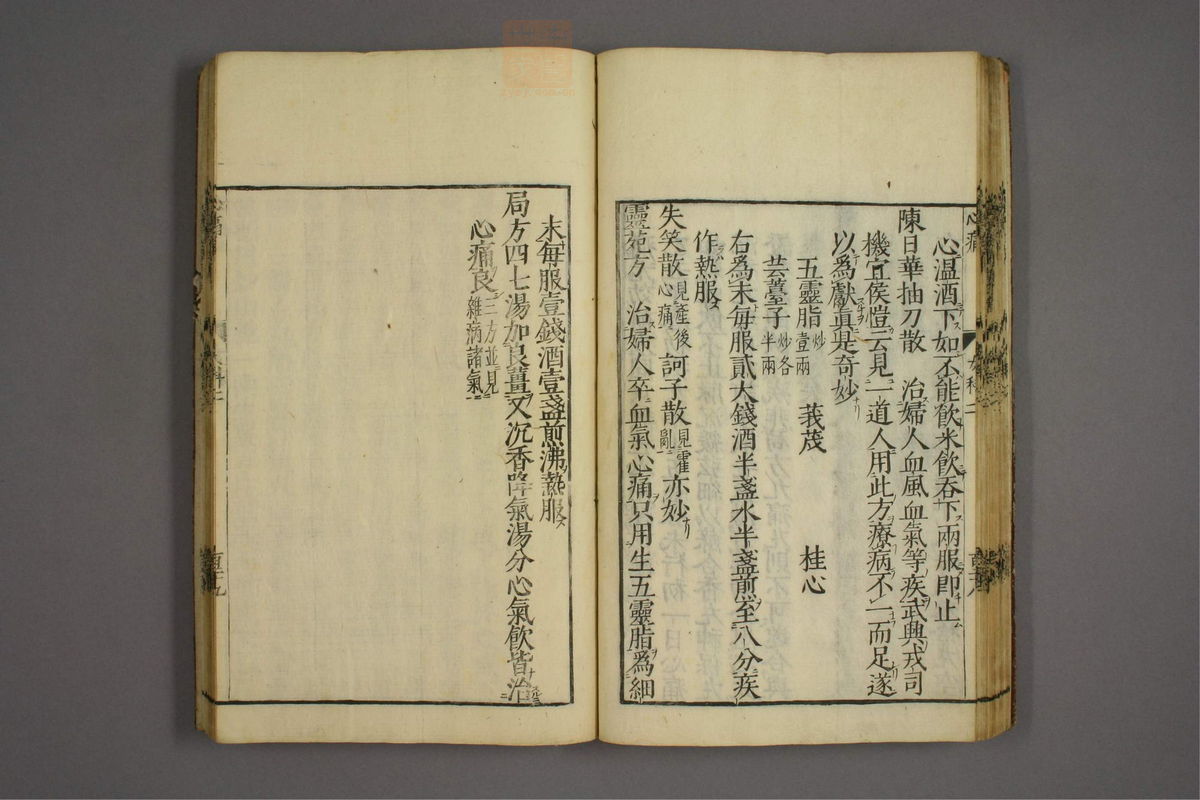 心痛
心温酒下如不能飲米飲吞下兩服即止
陳日華抽刀散 治婦人血風血氣等疾武興戎司
機宜侯愷云見一道人用此方療病不一而足遂
以爲獻眞是奇妙
五靈脂炒壹兩 莪茂 桂心
芸薹子炒各半兩
右爲末每服貳大錢酒半盞水半盞煎至八分疾
作熱服
失笑散見産後心痛 訶子散見霍亂 亦妙
靈苑方 治婦人卒血氣心痛只用生五靈脂爲細
末每服壹錢酒壹盞煎沸熱服
局方四七湯加良薑又沉香降氣湯分心氣飲皆治
心痛良三方並見雜病諸氣